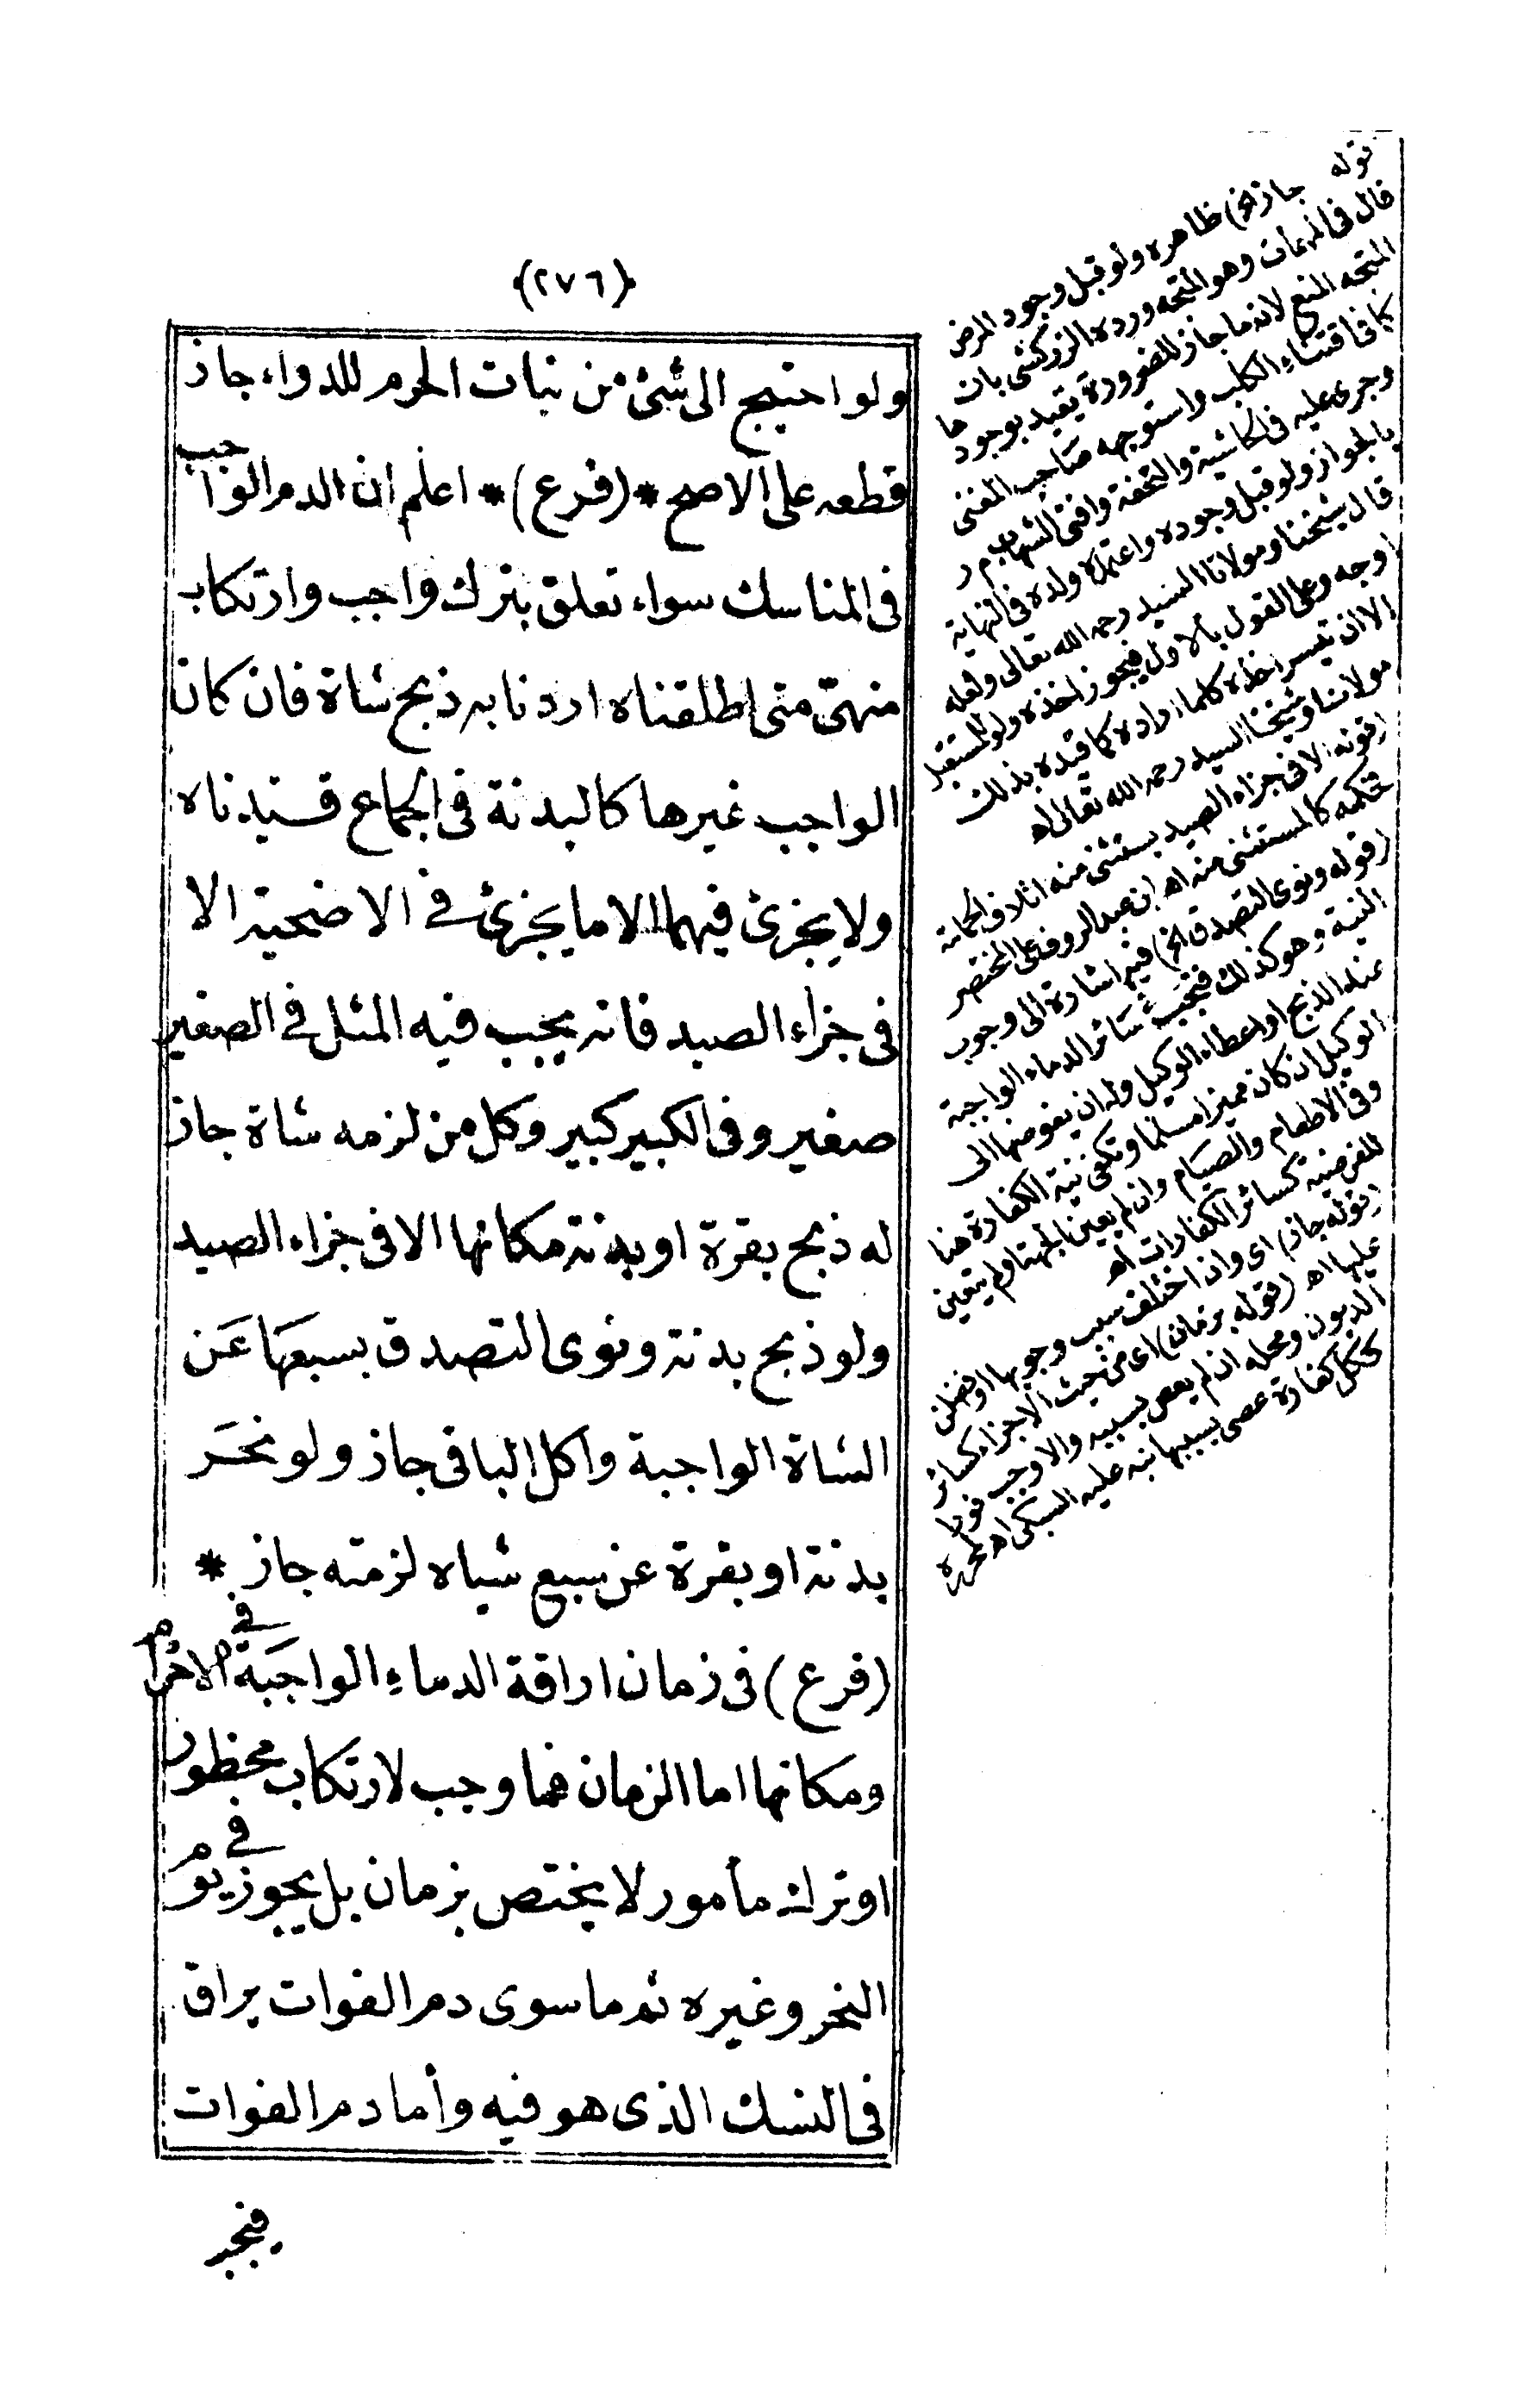 ﴿٢٧٦﴾
ولو احتيج الى شئ من نبات الحرم للدواء جاز
قطعه على الاصح * (فرع) * اعلم ان الدم الواجب
فى المناسك سواء تعلق بترك واجب وارتكاب
منهىّ متى اطلقناه اردنا به ذبح شاة فان كان
الواجب غيرها كالبدنة فى الجماع قيدناه
ولا يجزئ فيهما الا ما يجزئ فى الاضحية الا
فى جزاء الصيد فانه يجب فيه المثل فى الصغير
صغير وفى الكبير كبير وكل من لزمه شاة جاز
له ذبح بقرة او بدنة مكانها الا فى جزاء الصيد
ولو ذبح بدنة ونوى التصدق بسبعها عَن
الشاة الواجبة واكل الباقى جاز ولو نحَر
بدنة او بقرة عن سبع شياه لزمته جاز *
(فرع) فى زمان اراقة الدماءِ الواجبَة فى الاحرام
ومكانها اما الزمان فما وجب لارتكاب محظور
او ترك مأمور لا يختص بزمان بل يجوز فى يوم
النحر وغيره ثم ما سوى دم الفوات يراق
فى النسك الذى هو فيه وأما دم الفوات
فيجب
قوله جاز الخ) ظاهره ولو قبل وجود المرض
قال فى المهمات وهو المتجه ورده الزركشى بان
المتجه المنع لانه ما جاز للضرورة يقيد بوجودها
كما فى اقتناء الكلب واستوجهه صَاحب المغنى
وجرى عليه فى الحاشية والتحفة وافتى الشهاب م ر
بالجواز ولو قبل وجوده واعتمده ولده فى النهاية
قال شيخنا ومولانا السيد رحمه الله تعالى ولعله
اوجه وعلى القول بالاول فيجوز اخذه ولو للمستقبل
الا ان تيسر اخذه كلما اراده كما قيده بذلك
مولانا وشيخنا السيد رحمه الله تعالى اه
(قوله الا فى جزاء الصيد يستثنى منه اتلاف الحمامة
فحكمه كالمستثنى منه اه ابن عبد الروف على المختصر
(قوله ونوى التصدق الخ) فيه اشارة الى وجوب
النية وهو كذلك فتجب فى سَائر الدماء الواجبة
عند الذبح او اعطاء الوكيل وله ان يفوضها الى
الوكيل ان كان مميزا مسلما وتكفى نية الكفارة هنا
وفى الاطعام والصيَام وان لم يعين الجهة ولم يتعين
للفرضية كسائر الكفارات اه
(قوله جاز) اى وان اختلف سبب وجوبها
عليها اه (قوله بزمان) اى من حيث الاجزاء كسائر
الديون ومحله ان لم يعص بسببه والا وجب فورا
ككل كفارة عصى بسببها نبه عليه السبكى اه